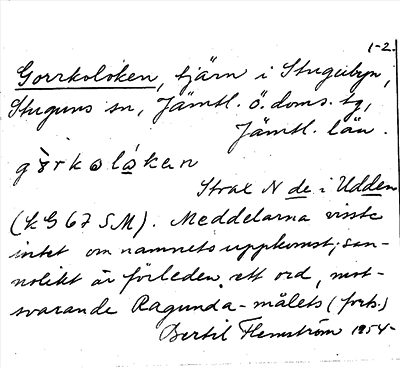 1-2.
Gorrkoloken, tjärn i Stugubyn,
Stuguns sn, Jämtl. ö. doms. tg,
Jämtl. län.
gòrkolókan
Strax N de i Udden
(LG 67 SM). Meddelarna visste
intet om namnets uppkomst; san-
nolikt är förleden ett ord, mot-
svarande Ragunda-målets (forts.)
Bertil Flemström 1954-